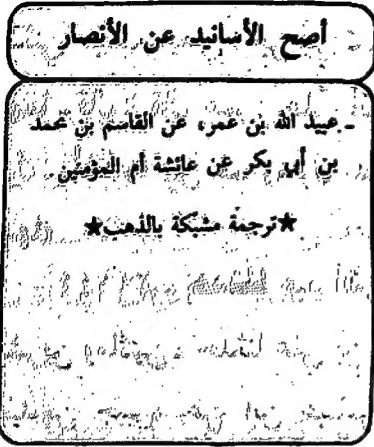 أصح الأسانيد عن الأنصار
- عبيد الله بن عمر، عن القاسم بن محمد
بن أبي بكر عن عائشة أم المؤمنين.
★ترجمة مشبكة بالذهب★